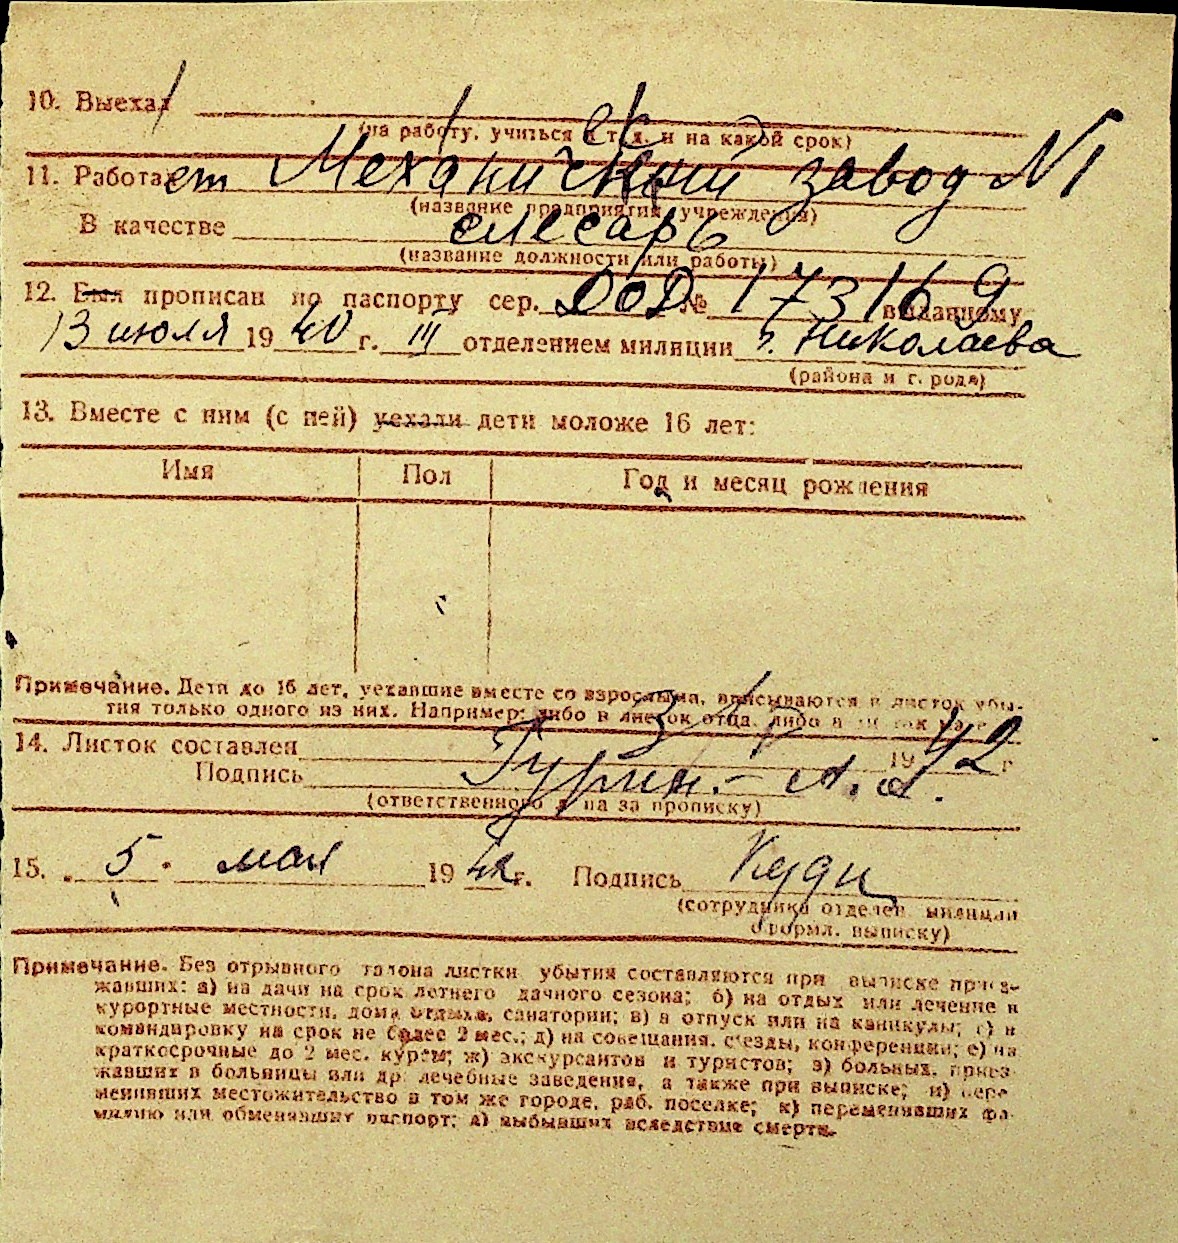 10. Выехал
(на работу, учиться и т. д. и на какой срок)
11. Работает Механический завод N1
(название предприятия, учреждения)
В качестве слесарь
(название должности или работы)
12. Был прописан по паспорту сер. № 173169 выданному
13 июля 1940 г. III отделением милиции г. Николаева
(района и города)
13. Вместе с ним (с ней) уехали дети моложе 16 лет:
Имя Пол Год и месяц рождения
Примечание. Дети до 16 лет, уехавшие вместе со взрослыми, вписываются в листок убы-
тия только одного из них. Например: либо в листок отца, либо в листок
14. Листок составлен 1942 г
Подпись Гурин.- А.
(ответственного лица за прописку)
15. 5. мая 1942 г. Подпись
(сотрудника отделен. милиции
оформл. выписку)
Примечание. Без отрывного талона листки убытия составляются при выписке приез-
жавших: а) на дачи на срок летнего дачного сезона; б) на отдых или лечение в
курортные местности, дома отдыха, санатории; в) в отпуск или на каникулы; г) в
командировку на срок не более 2 мес.; д) на совещания, с'езды, конференции; е) на
краткосрочные до 2 мес. курсы; ж) экскурсантов и туристов; з) больных, приез-
жавших в больницы или др. лечебные заведения, а также при выписке; и) пере-
менивших местожительство в том же городе, раб. поселке; к) переменивших фа-
милию или обменявших паспорт; л) выбывших вследствие смерти.